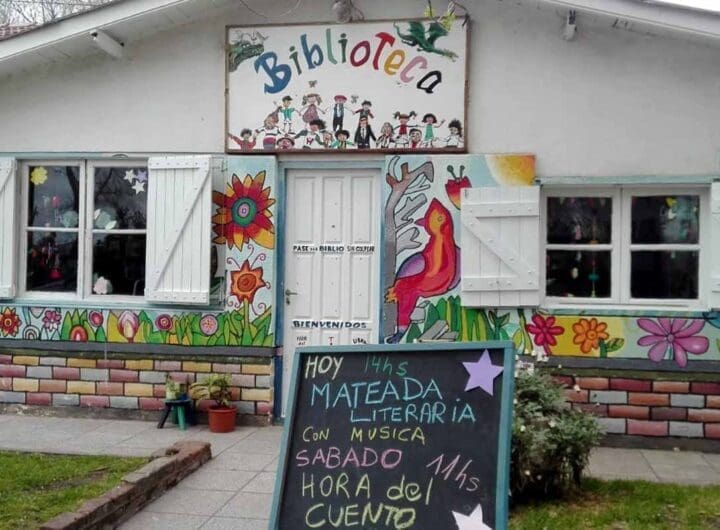 BiblioTeca
PASE POR BIBLIO SIN GOLPEAR
BIENVENIDOS
HOY 14hs
MATEADA
LITERARIA
CON MUSICA
SABADO 11hs
HORA del
CUENTO